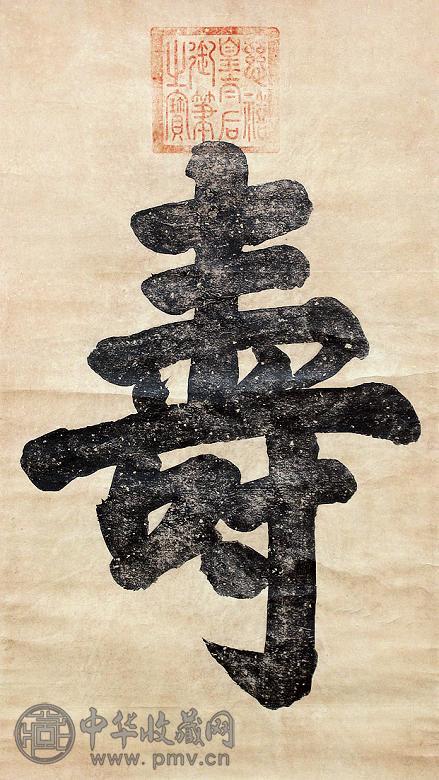 慈禧
皇太后
御筆
之寶
壽
中华收藏网
www.pmv.cn